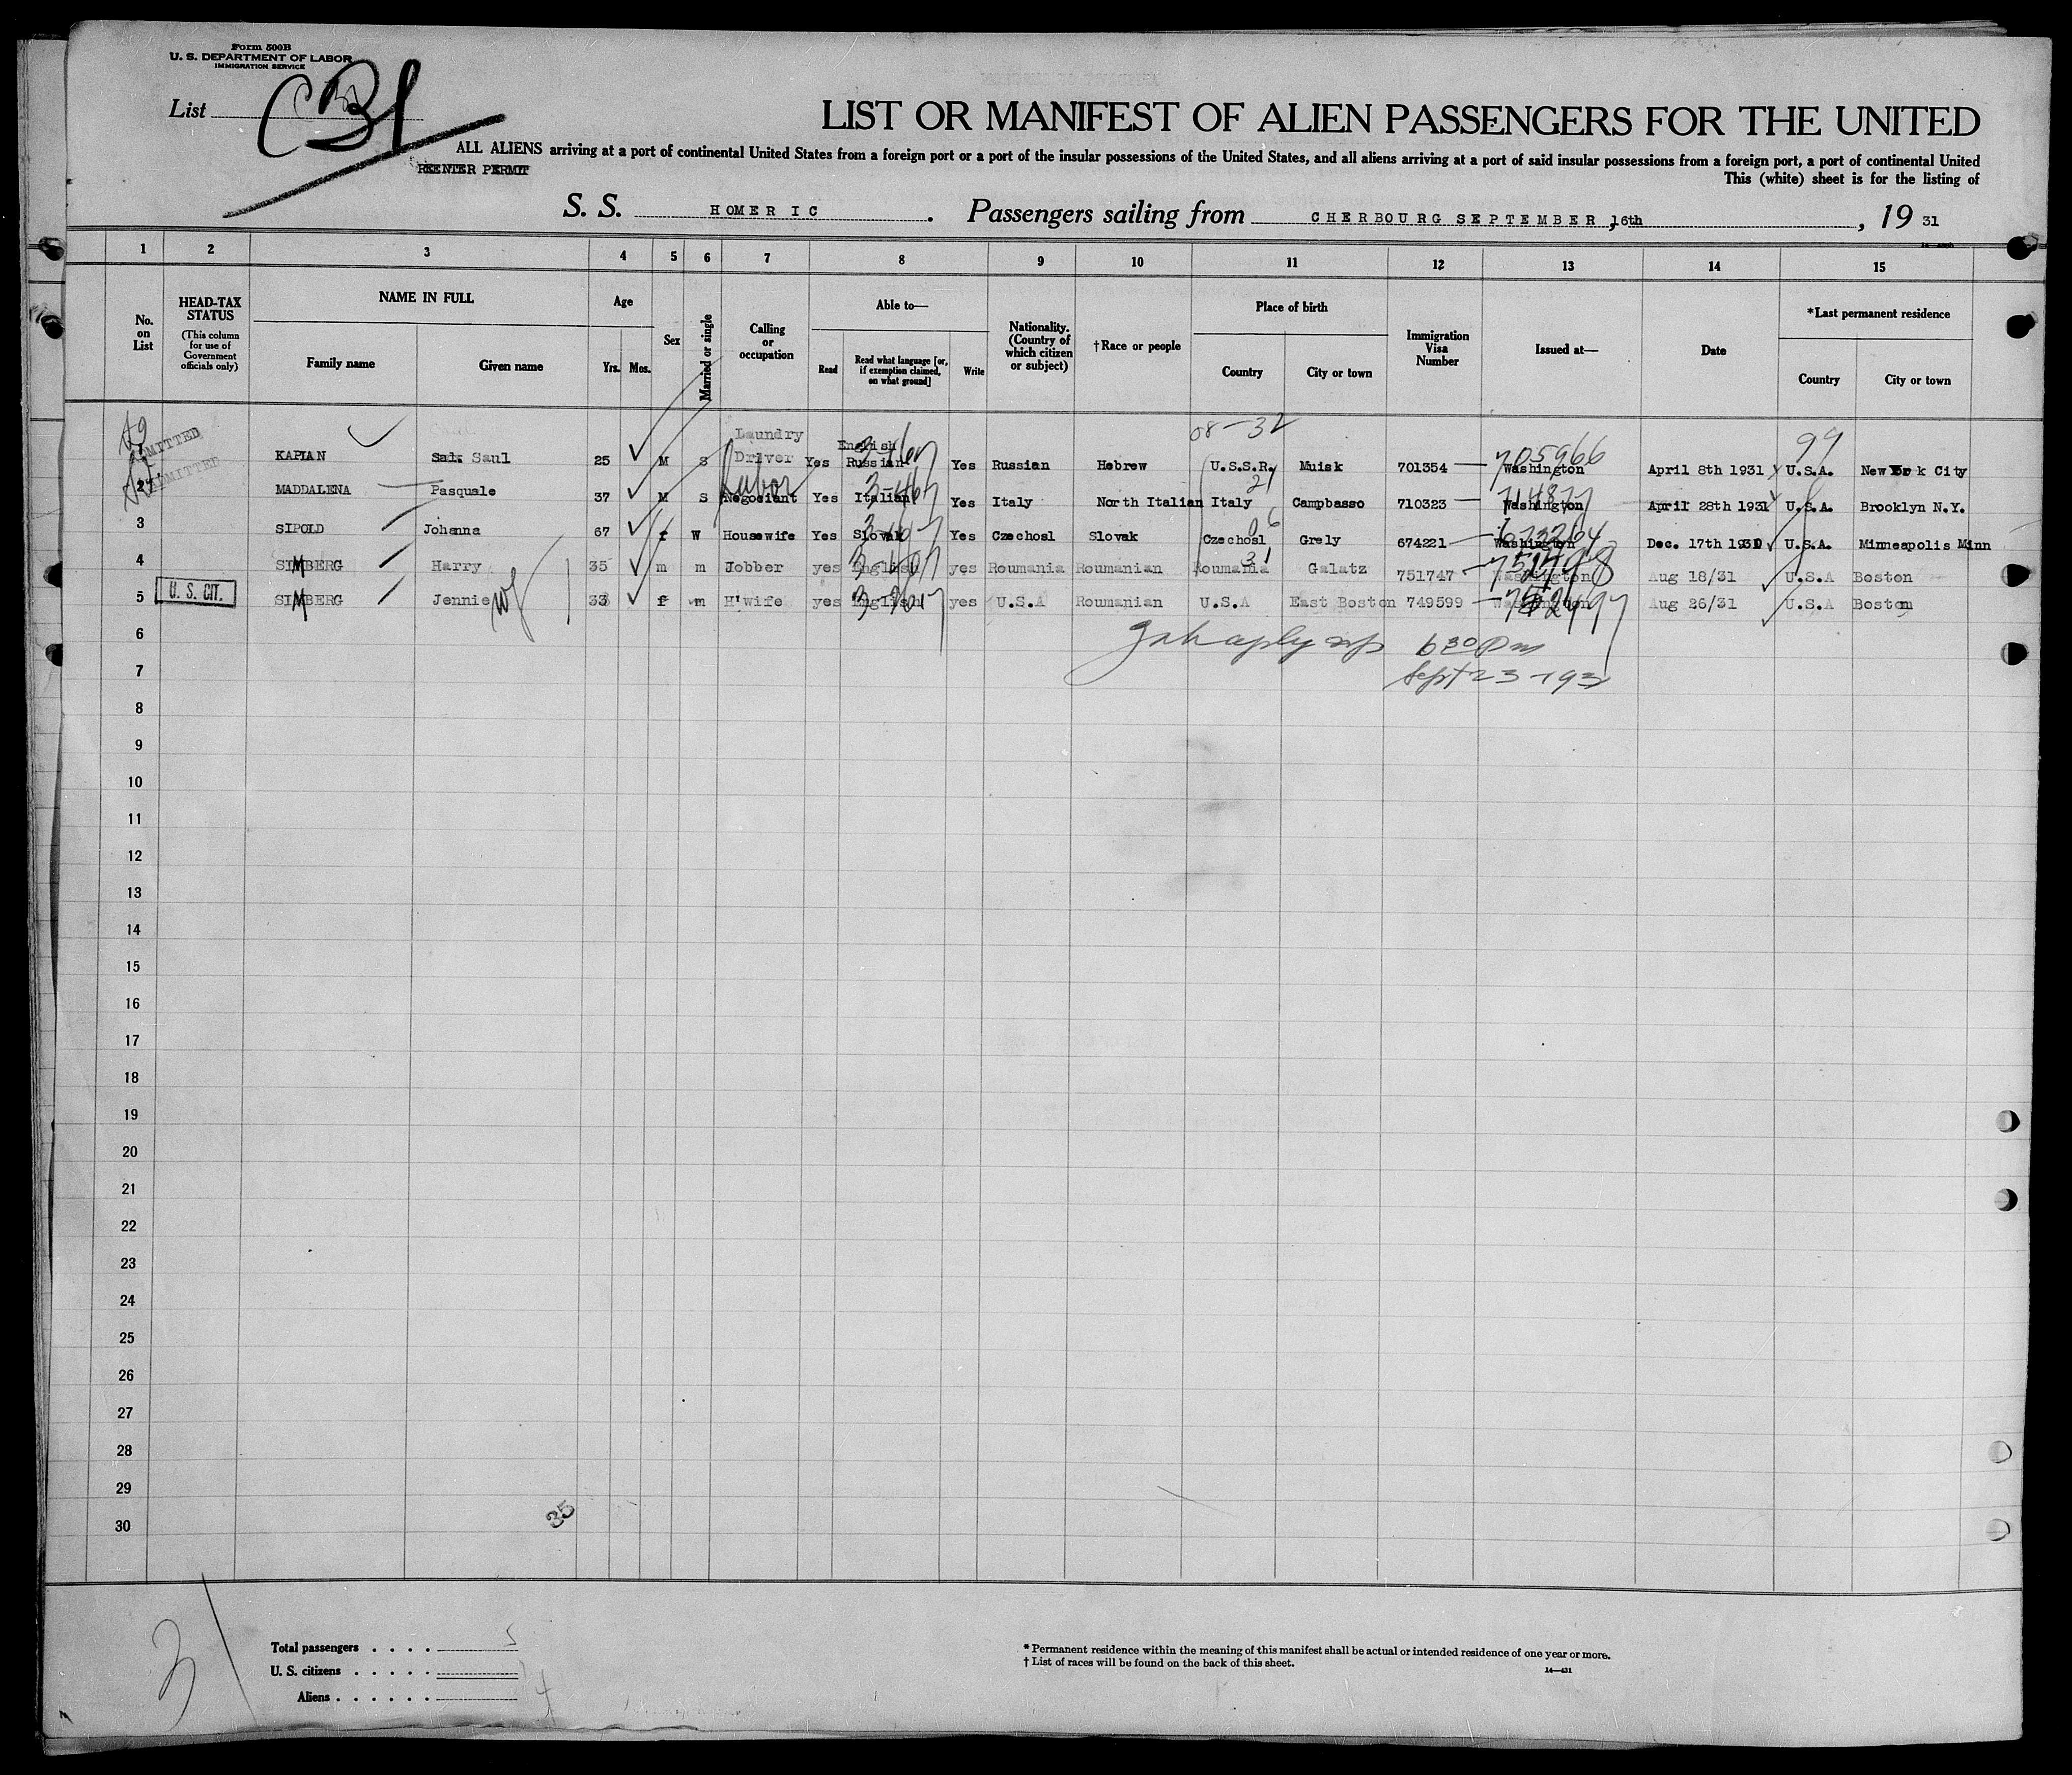 Form 500B
U. S. DEPARTMENT OF LABOR
IMMIGRATION SERVICE
List
LIST OR MANIFEST OF ALIEN PASSENGERS FOR THE UNITED
ALL ALIENS arriving at a port of continental United States from a foreign port or a port of the insular possessions of the United States, and all aliens arriving at a port of said insular possessions from a foreign port, a port of continental United
REENTER PERMIT
This (white) sheet is for the listing of
S. S. HOMERIC. Passengers sailing from CHERBOURG SEPTEMBER 16th, 19 31
1 2 3 4 5 6 7 8 9 10 11 12 13 14 15
No. on List
HEAD-TAX STATUS
(This column for use of Government officials only)
NAME IN FULL
Family name Given name
Age
Yrs. Mos.
Sex
Married or single
Calling or occupation
Able to—
Read
Read what language [or, if exemption claimed, on what ground]
Write
Nationality. (Country of which citizen or subject)
†Race or people
Place of birth
Country City or town
Immigration Visa Number
Issued at—
Date
*Last permanent residence
Country City or town
08-32
99
ADMITTED KAPIAN Saul 25 M S Laundry Driver Yes English Russian Yes Russian Hebrew U.S.S.R. Muisk 701354 Washington 705966 April 8th 1931 U.S.A. New York City
2 ADMITTED MADDALENA Pasquale 37 M S Negociant Labor Yes Italian Yes Italy North Italian Italy 21 Campbasso 710323 Washington April 28th 1931 U.S.A. Brooklyn N.Y.
3 SIPOLD Johanna 67 f W Housewife Yes Slovak Yes Czechosl Slovak Czechosl 06 Grely 674221 Washington Dec. 17th 1930 U.S.A. Minneapolis Minn
4 SIMBERG Harry 35 m m Jobber yes English yes Roumania Roumanian Roumania 31 Galatz 751747 Washington Aug 18/31 U.S.A Boston
5 U. S. CIT. SIMBERG Jennie wf 33 f m H'wife yes English yes U.S.A Roumanian U.S.A East Boston 749599 Washington Aug 26/31 U.S.A Boston
6
630 Pm
7
Sept 23-193
8
9
10
11
12
13
14
15
16
17
18
19
20
21
22
23
24
25
26
27
28
29
35
30
Total passengers . . . . 5
U. S. citizens . . . . .
Aliens . . . . . . 4
* Permanent residence within the meaning of this manifest shall be actual or intended residence of one year or more.
† List of races will be found on the back of this sheet.
14—431